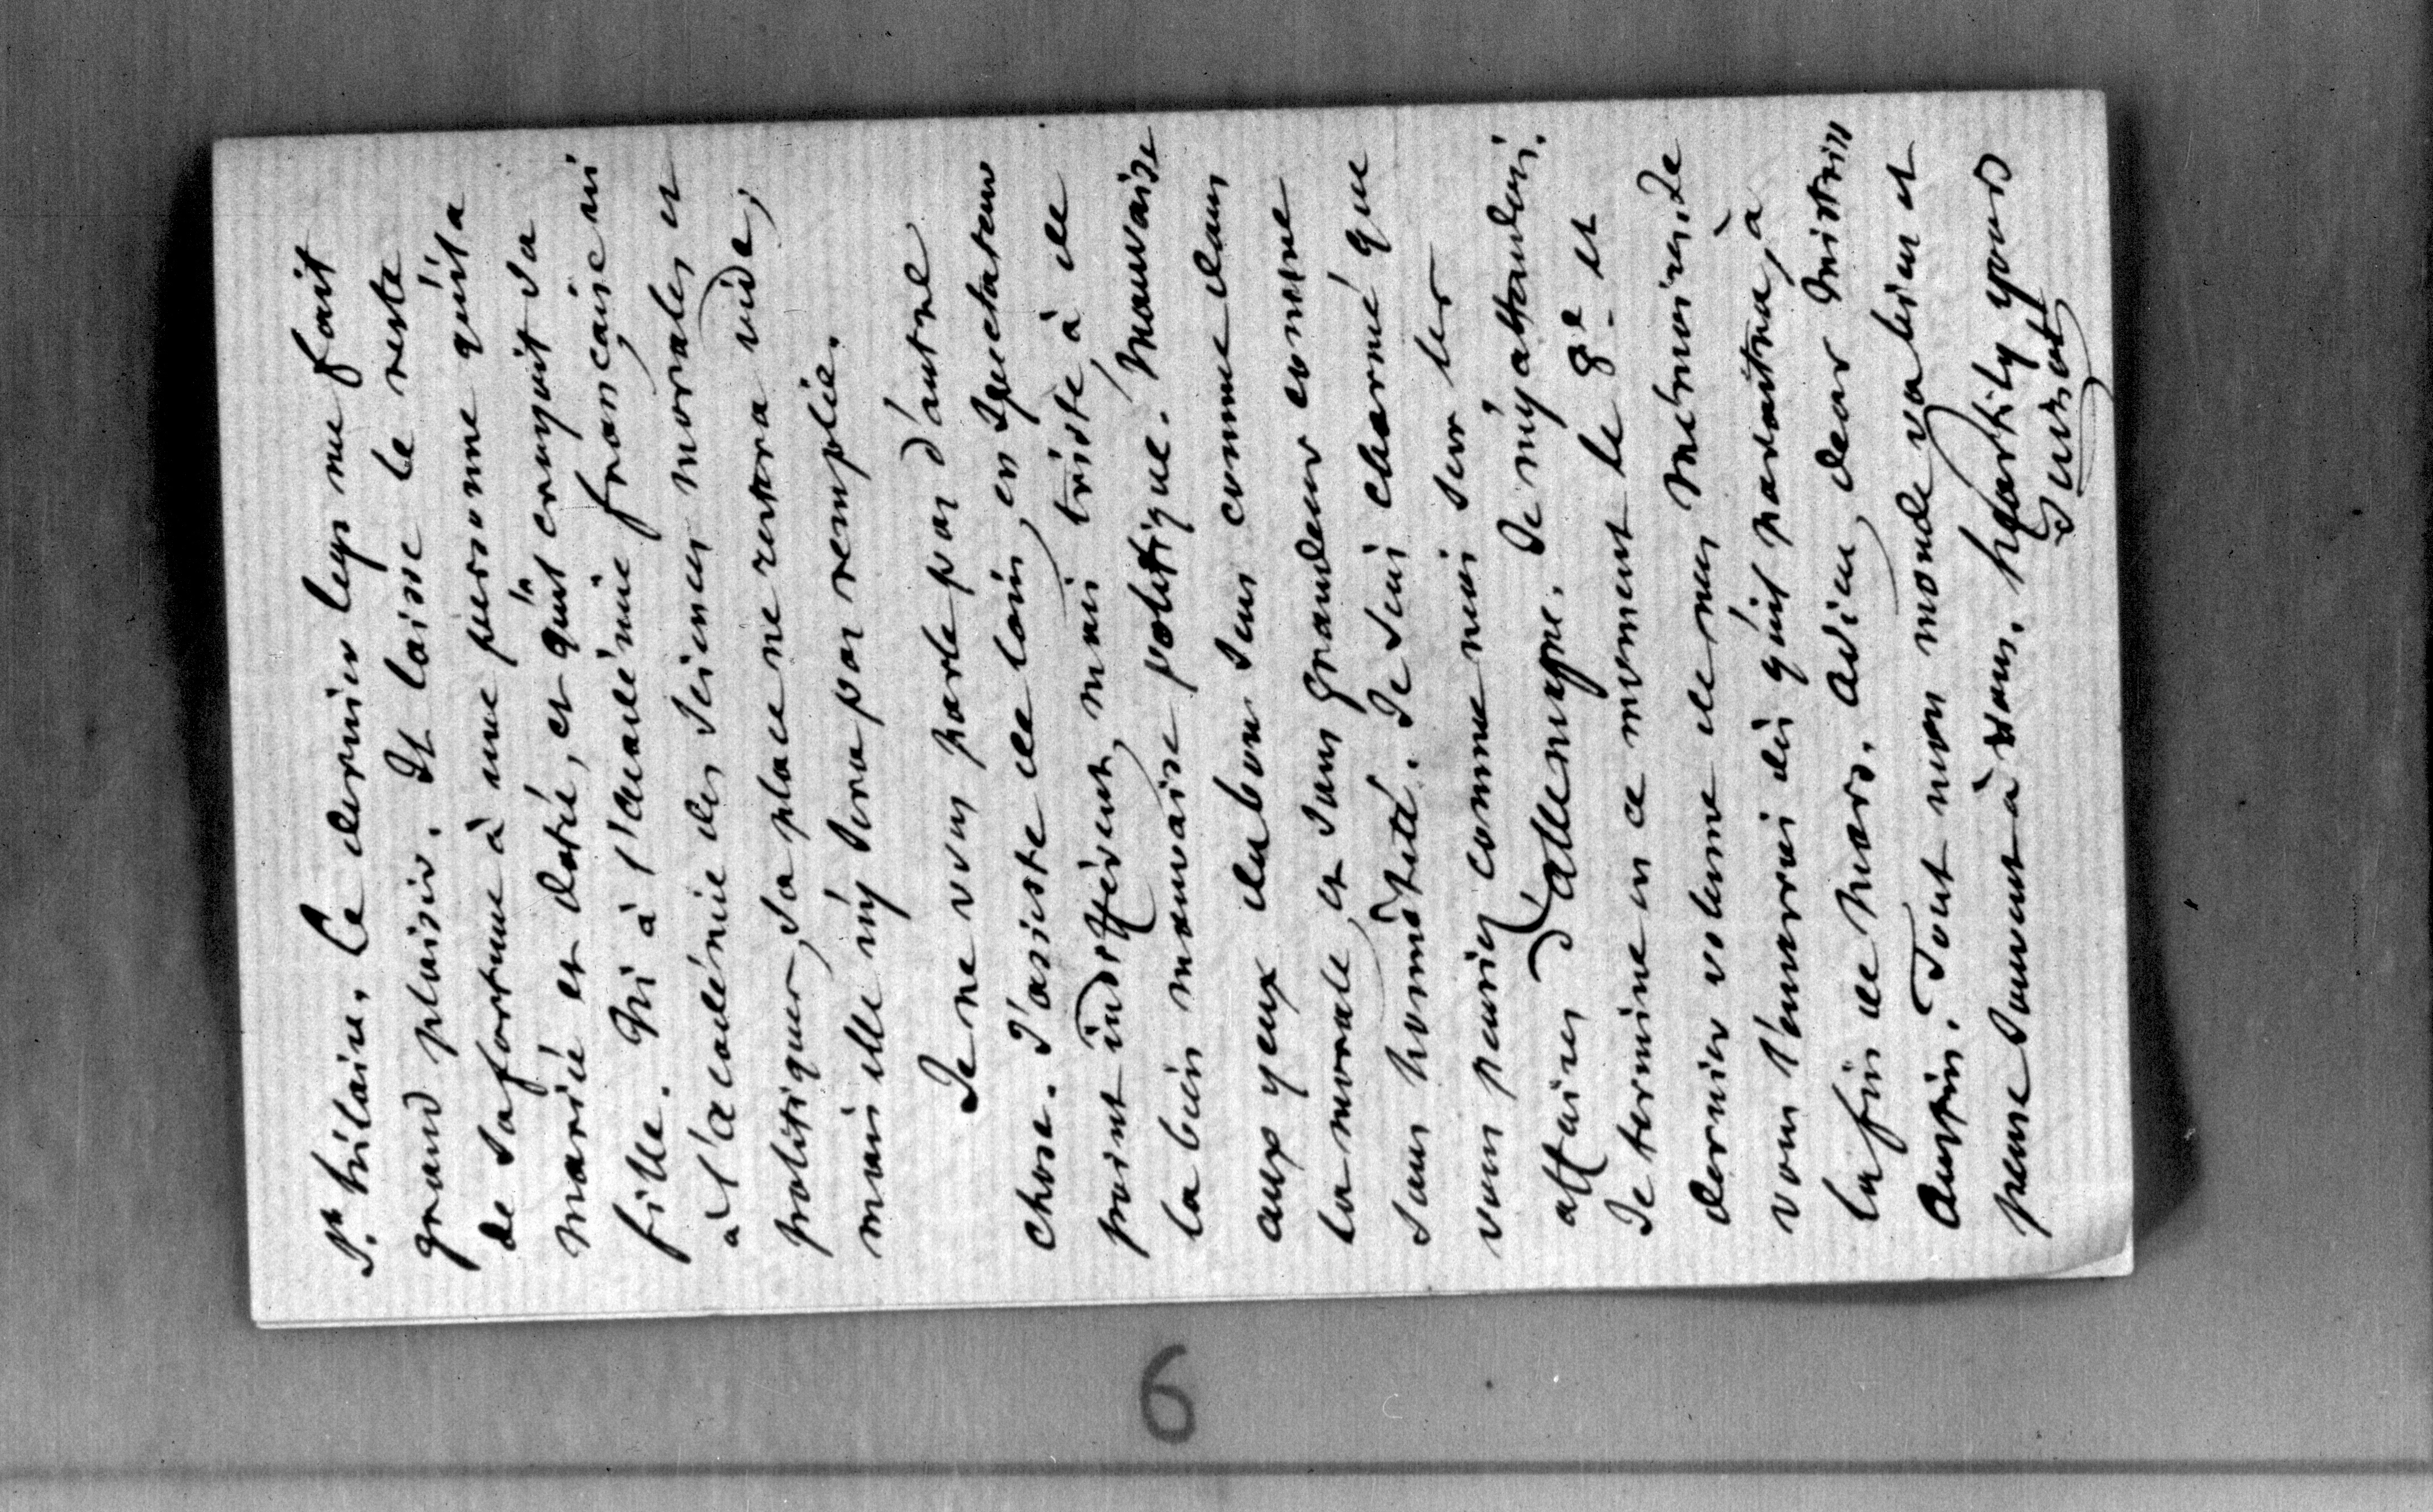 St hilaire. Ce dernier legs me fait
grand plaisir. Il laisse le reste
de sa fortune à une personne qu'il a
mariée et dotée, et qu'on croyait sa
fille. Ni à l'académie française ni
à l'académie des sciences morales et
politiques, sa place ne restera vide;
mais elle n'y sera pas remplie.
Je ne vous parle pas d'autre
chose. J'assiste de loin, en spectateur
point indifférent, mais triste, à de
la bien mauvaise politique. Mauvaise
aux yeux du bon sens comme dans
la morale, et sans grandeur comme
sans honnêteté. Je suis charmé que
vous pensiez comme moi sur les
affaires d'allemagne. Je m'y attendais.
Je termine en ce moment le 8e et
dernier volume de mes Mémoires. Je
vous l'enverrai dès qu'il paraîtra, à
la fin de Mars. Adieu, dear Mistriss
Austin. Tout mon monde va bien et
pense souvent à vous. heartily yours
Guizot
6